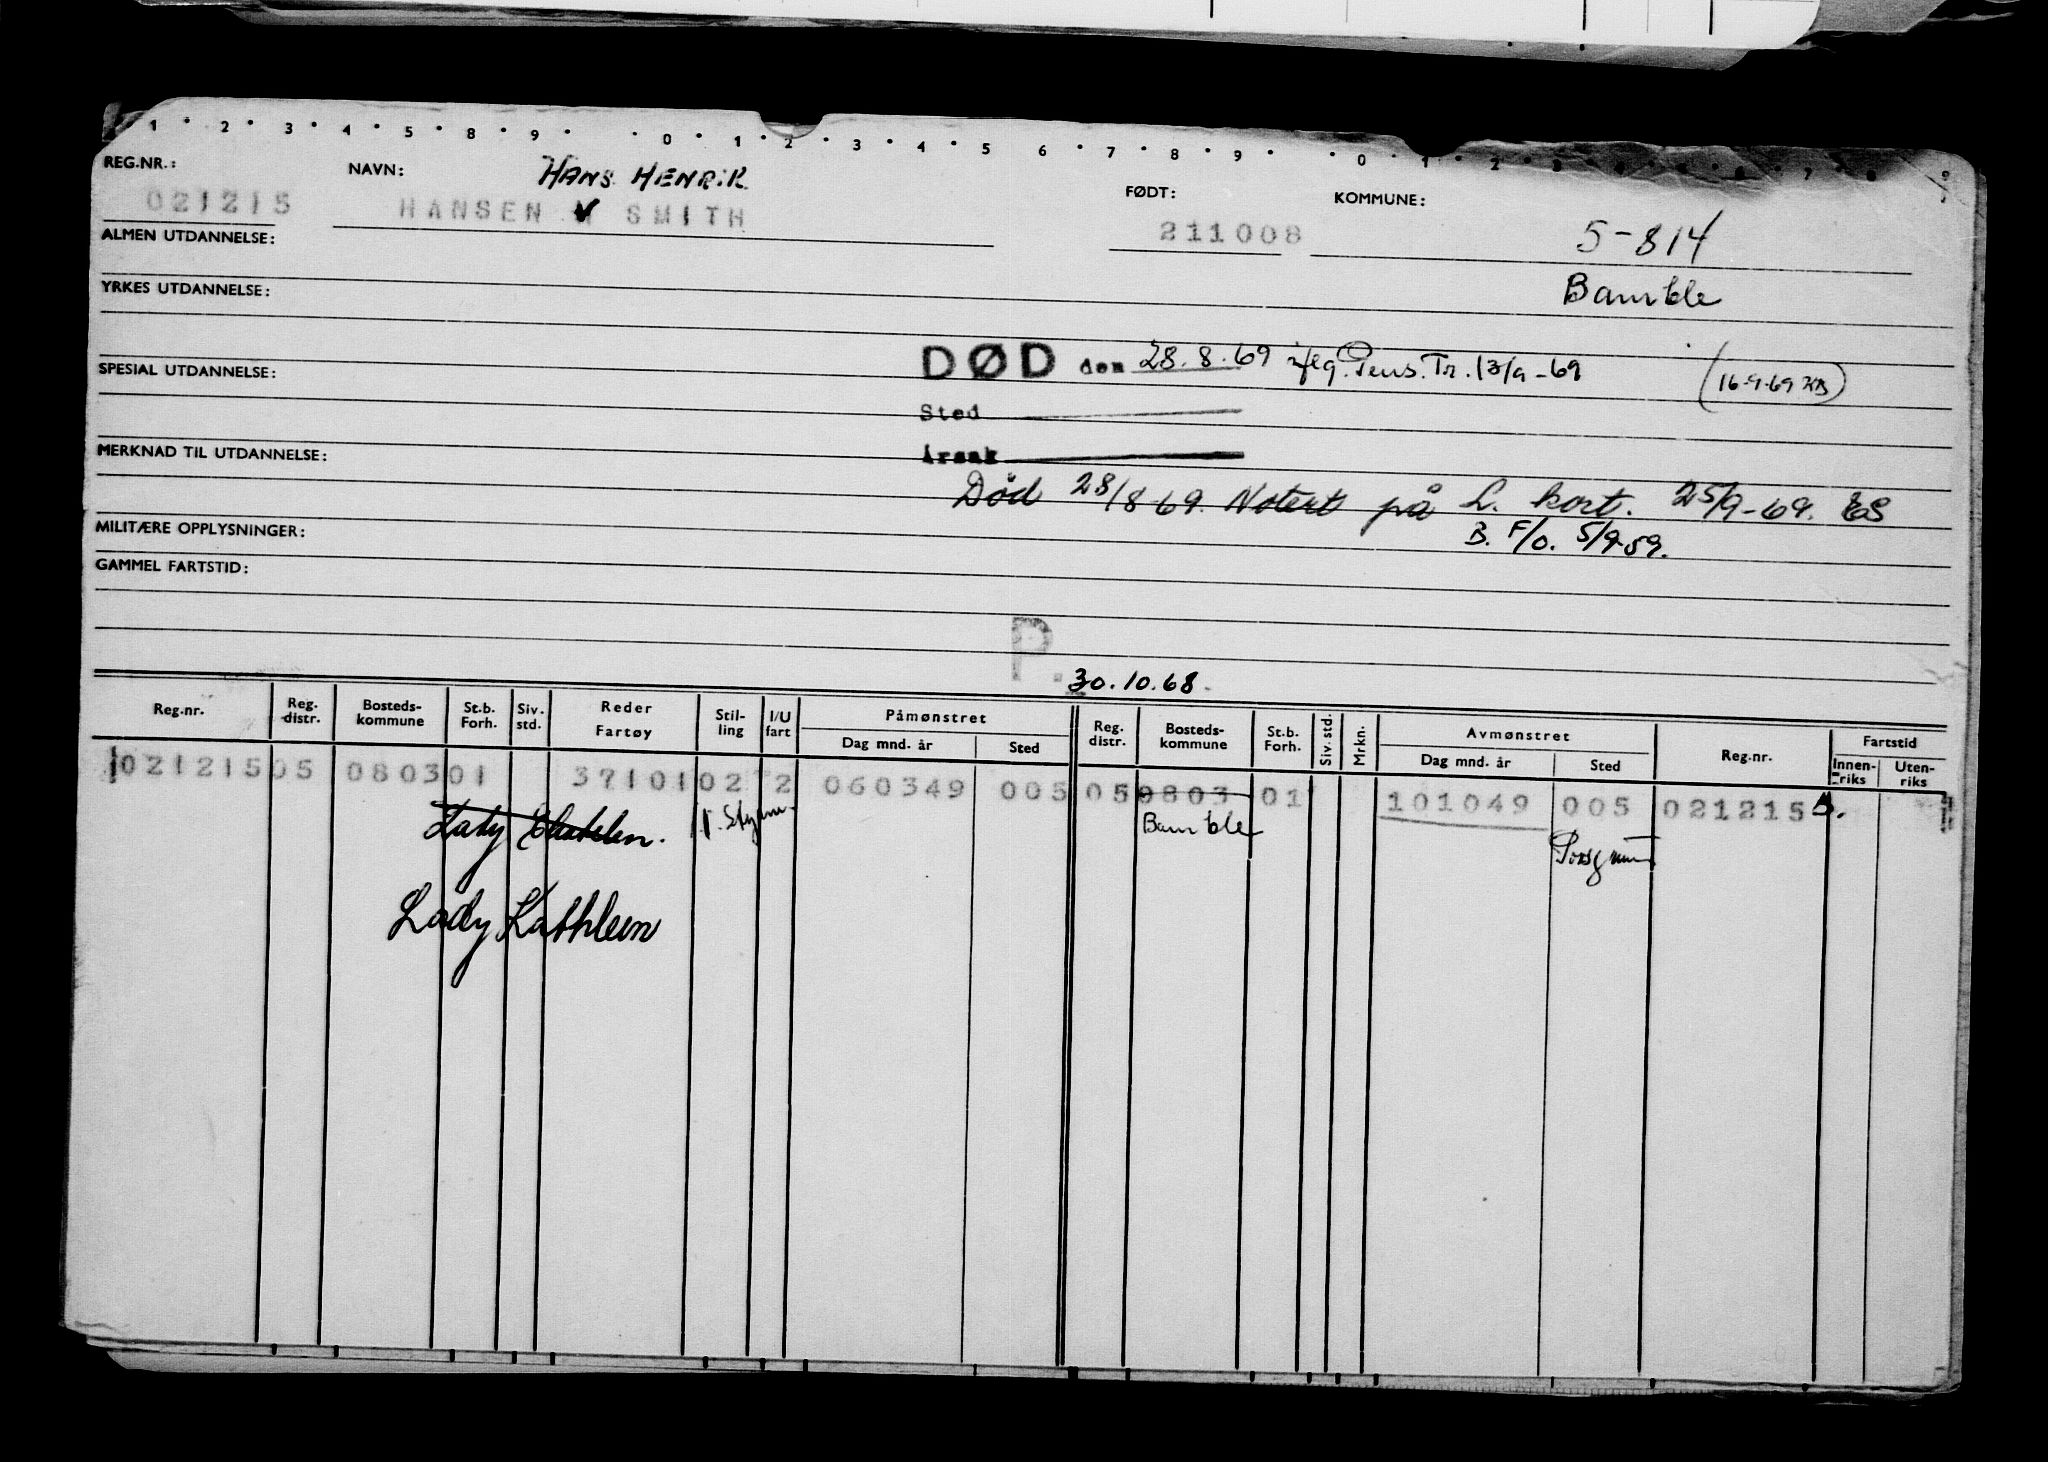 1 · 2 · 3 · 4 · 5 · 8 · 9 · · 0 · 1 · 2 · 3 · 4 · 5 · 6 · 7 · 8 · 9 · · 0 · 1 · 2
REG.NR.: NAVN: HANS HENRIK FØDT: KOMMUNE:
021215 HANSEN SMITH 211008 5-814
ALMEN UTDANNELSE:
YRKES UTDANNELSE: Bamble
DØD den 28.8.69 iflg. Pens. Tr. 13/9-69 (16-9-69 )
SPESIAL UTDANNELSE:
Sted
MERKNAD TIL UTDANNELSE: Årsak
Død 28/8 69. Notert på L. kort. 25/9-69. ES
MILITÆRE OPPLYSNINGER: B. F/O. 5/9-59.
GAMMEL FARTSTID:
P. 30.10.68.
Reg.nr. Reg. distr. Bosteds-kommune St.b. Forh. Siv. std. Reder Fartøy Stil-ling I/U fart Påmønstret Dag mnd. år Sted Reg. distr. Bosteds-kommune St.b. Forh. Siv. std. Mrkn. Avmønstret Dag mnd. år Sted Reg.nr. Fartstid Innen-riks Uten-riks
021215 05 0803 01 37101 02 2 060349 005 05 0803 01 101049 005 021215
Bamble Porsgrunn
Lady Kathleen